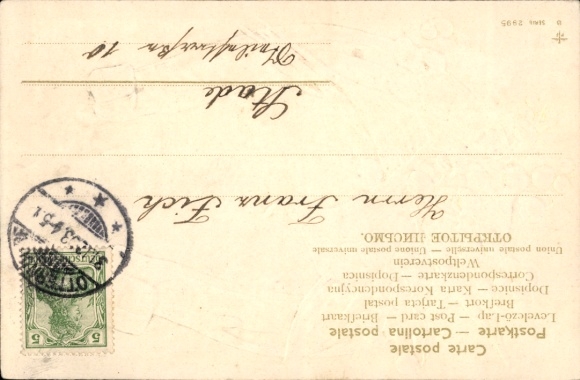 Carte postale
Postkarte — Cartolina postale
Levelező-Lap — Post card — Briefkaart
Brefkort — Tarjeta postal
Dopisnice — Karta Korespondencyjna
Correspondenzkarte — Dopisnica
Weltpostverein
Union postale universelle — Unione postale universale
ОТКРЫТОЕ ПИСЬМО.
Herrn Franz Fich
Stade
10
SERIE 2995
DEUTSCHES
5 5